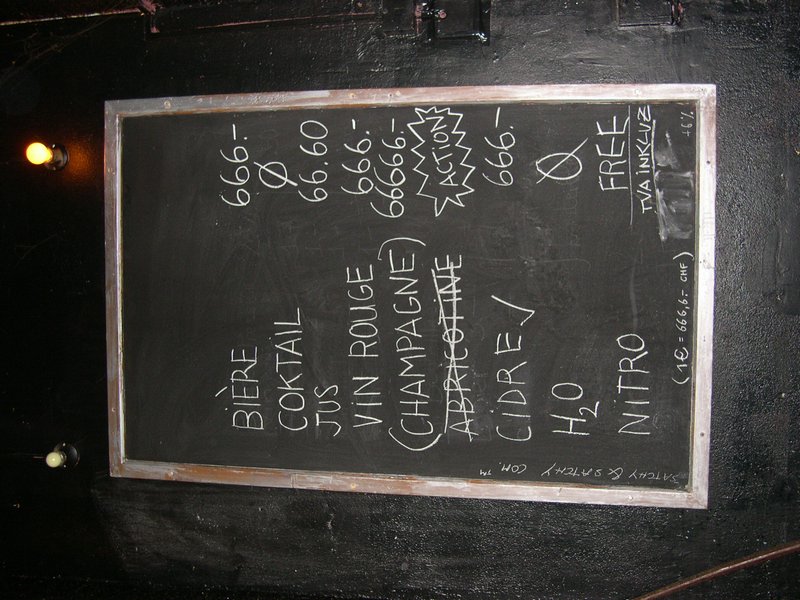 BIÈRE 666.-
COKTAIL Ø
JUS 66.60
VIN ROUGE 666.-
(CHAMPAGNE) 66666.-
ABRICOTINE ACTION
CIDRE √ 666.-
H2O Ø
NITRO FREE
TVA INKLUZ
(1€ = 666,6.- CHF) +6%
SATCHY & SATCHY COM. ™